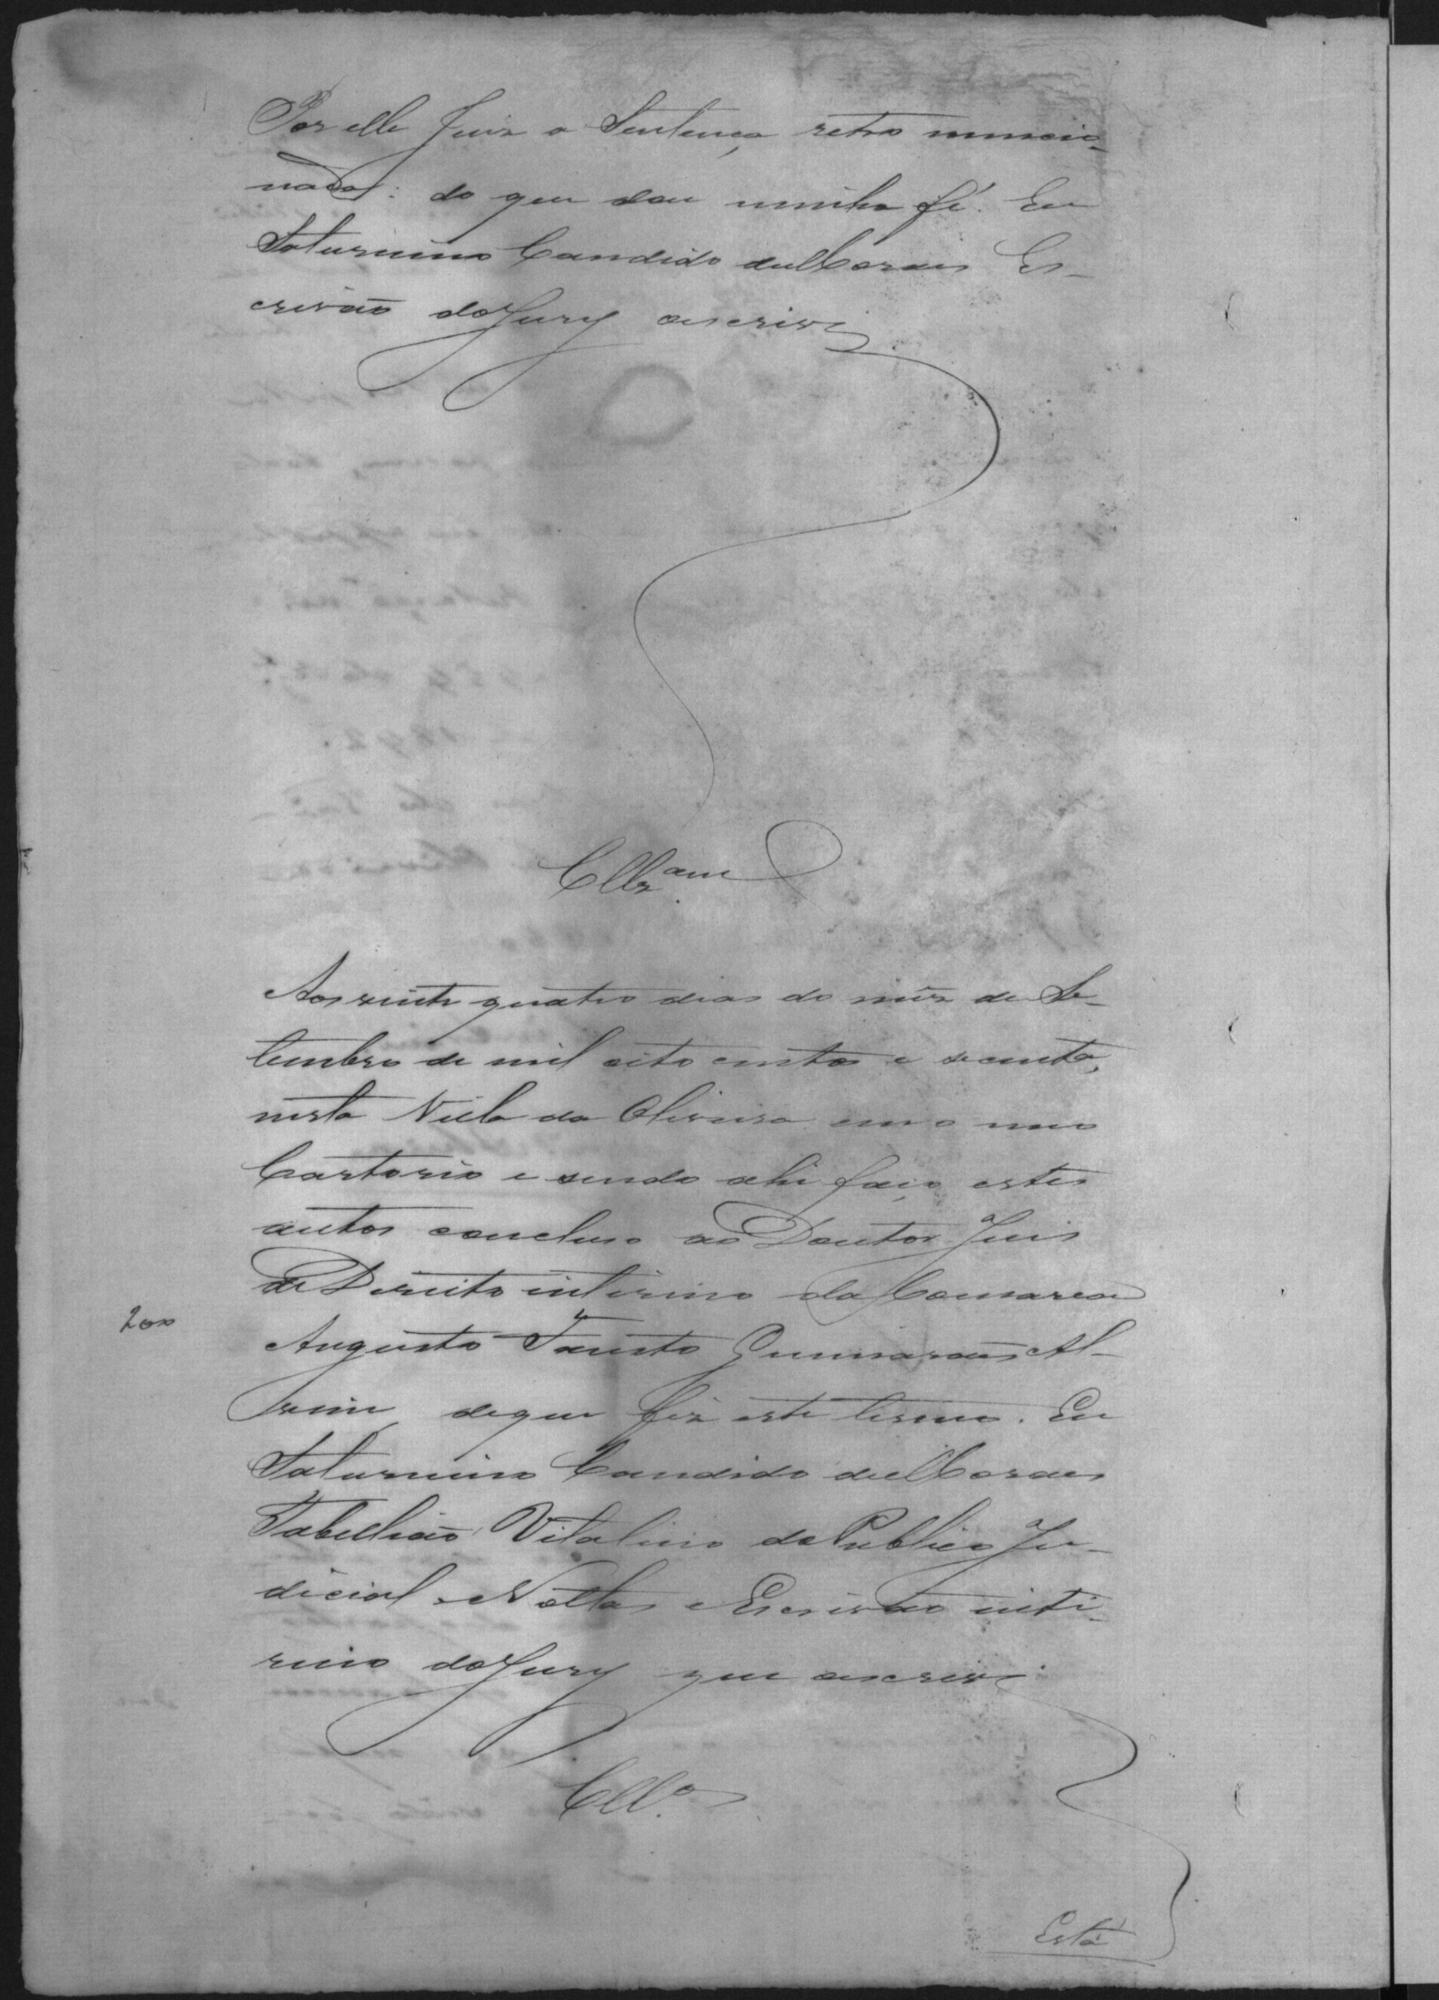 Por elle Juiz a Sentença retro mencio-
nada: do que dou minha fé. Eu
Saturnino Candido de Moraes Es-
crivão do Jury o escrivi
Cllz.am
Aos vinte quatro dias do mez de Se-
tembro de mil oito centos e secenta,
nesta Villa da Oliveira em o meu
Cartorio e sendo ahi faço estes
autos concluso ao Doutor Juis
de Direito interino da Comarca
200
Augusto Fausto Guimarães Al-
vim, de que fiz este termo. Eu
Saturnino Candido de Moraes
Tabellião Vitalino do Publico Ju-
dicial e Nottas e Escrivão inte-
rino do Jury que o escrivi.
Cll.o
Está